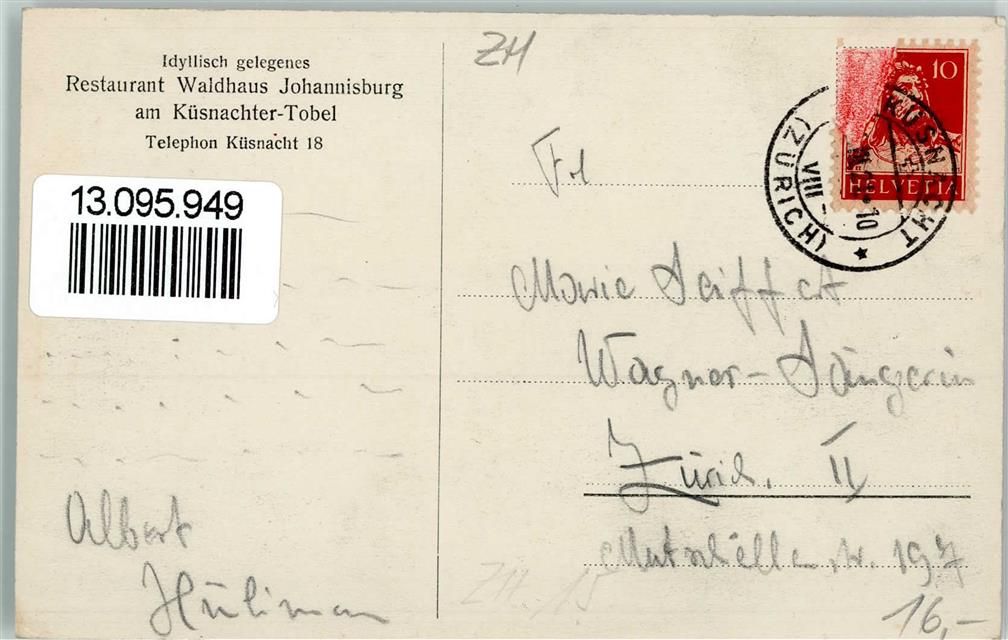 Idyllisch gelegenes
Restaurant Waldhaus Johannisburg
am Küsnachter-Tobel
Telephon Küsnacht 18
13.095.949
Albert
Hüliman
ZH
10
HELVETIA
KÜSNACHT
(ZÜRICH)
VIII
10
Frl
Marie Seiffert
Wagner-Sängerin
Zürich. II
Mutschellenstr. 197
ZH. 15
16,-